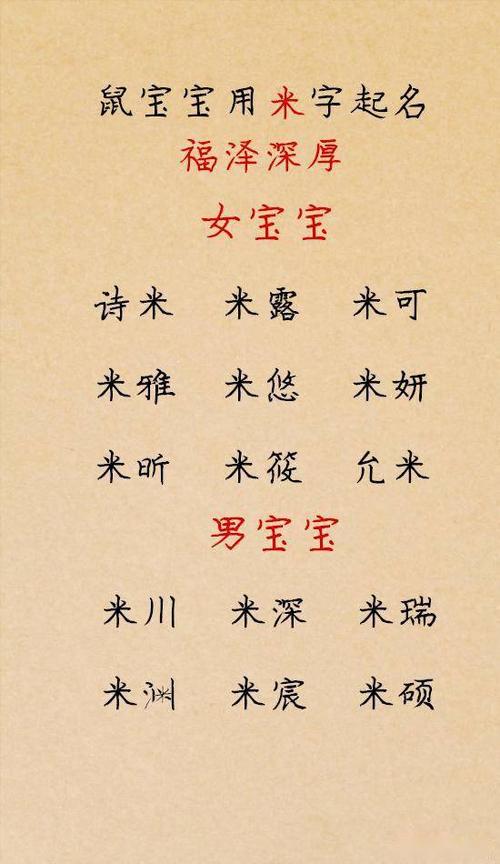 鼠宝宝用米字起名
福泽深厚
女宝宝
诗米 米露 米可
米雅 米悠 米妍
米昕 米筱 允米
男宝宝
米川 米深 米瑞
米渊 米宸 米硕